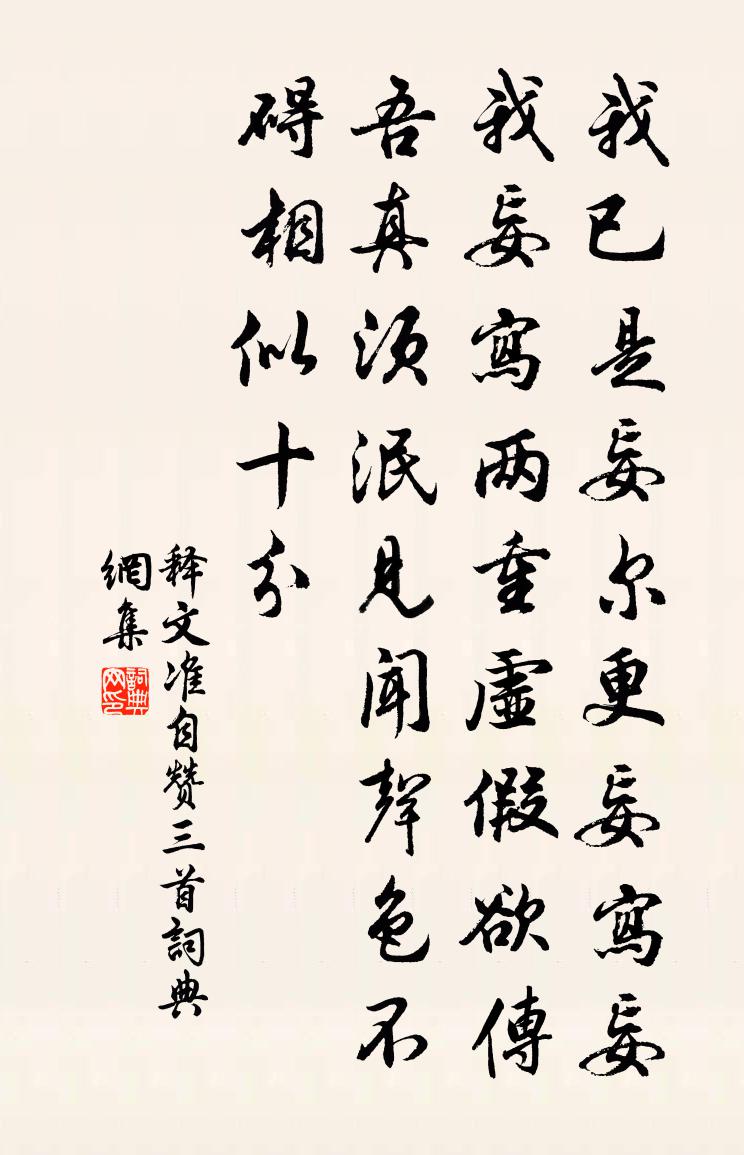 我已是妄尔更妄寫妄
我妄寫两重虛假欲傳
吾真须泯見闻聲色不
碍相似十分
释文准自赞三首詞典
網集
詞典网印